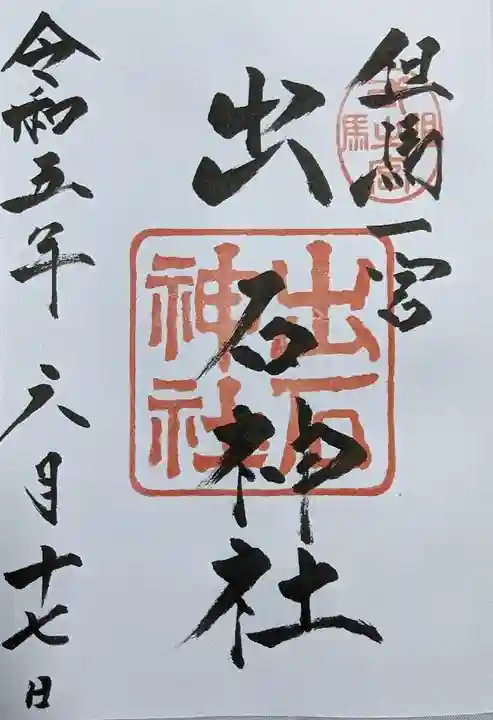 但馬一宮
出石神社
令和五年六月十七日
出石
神社